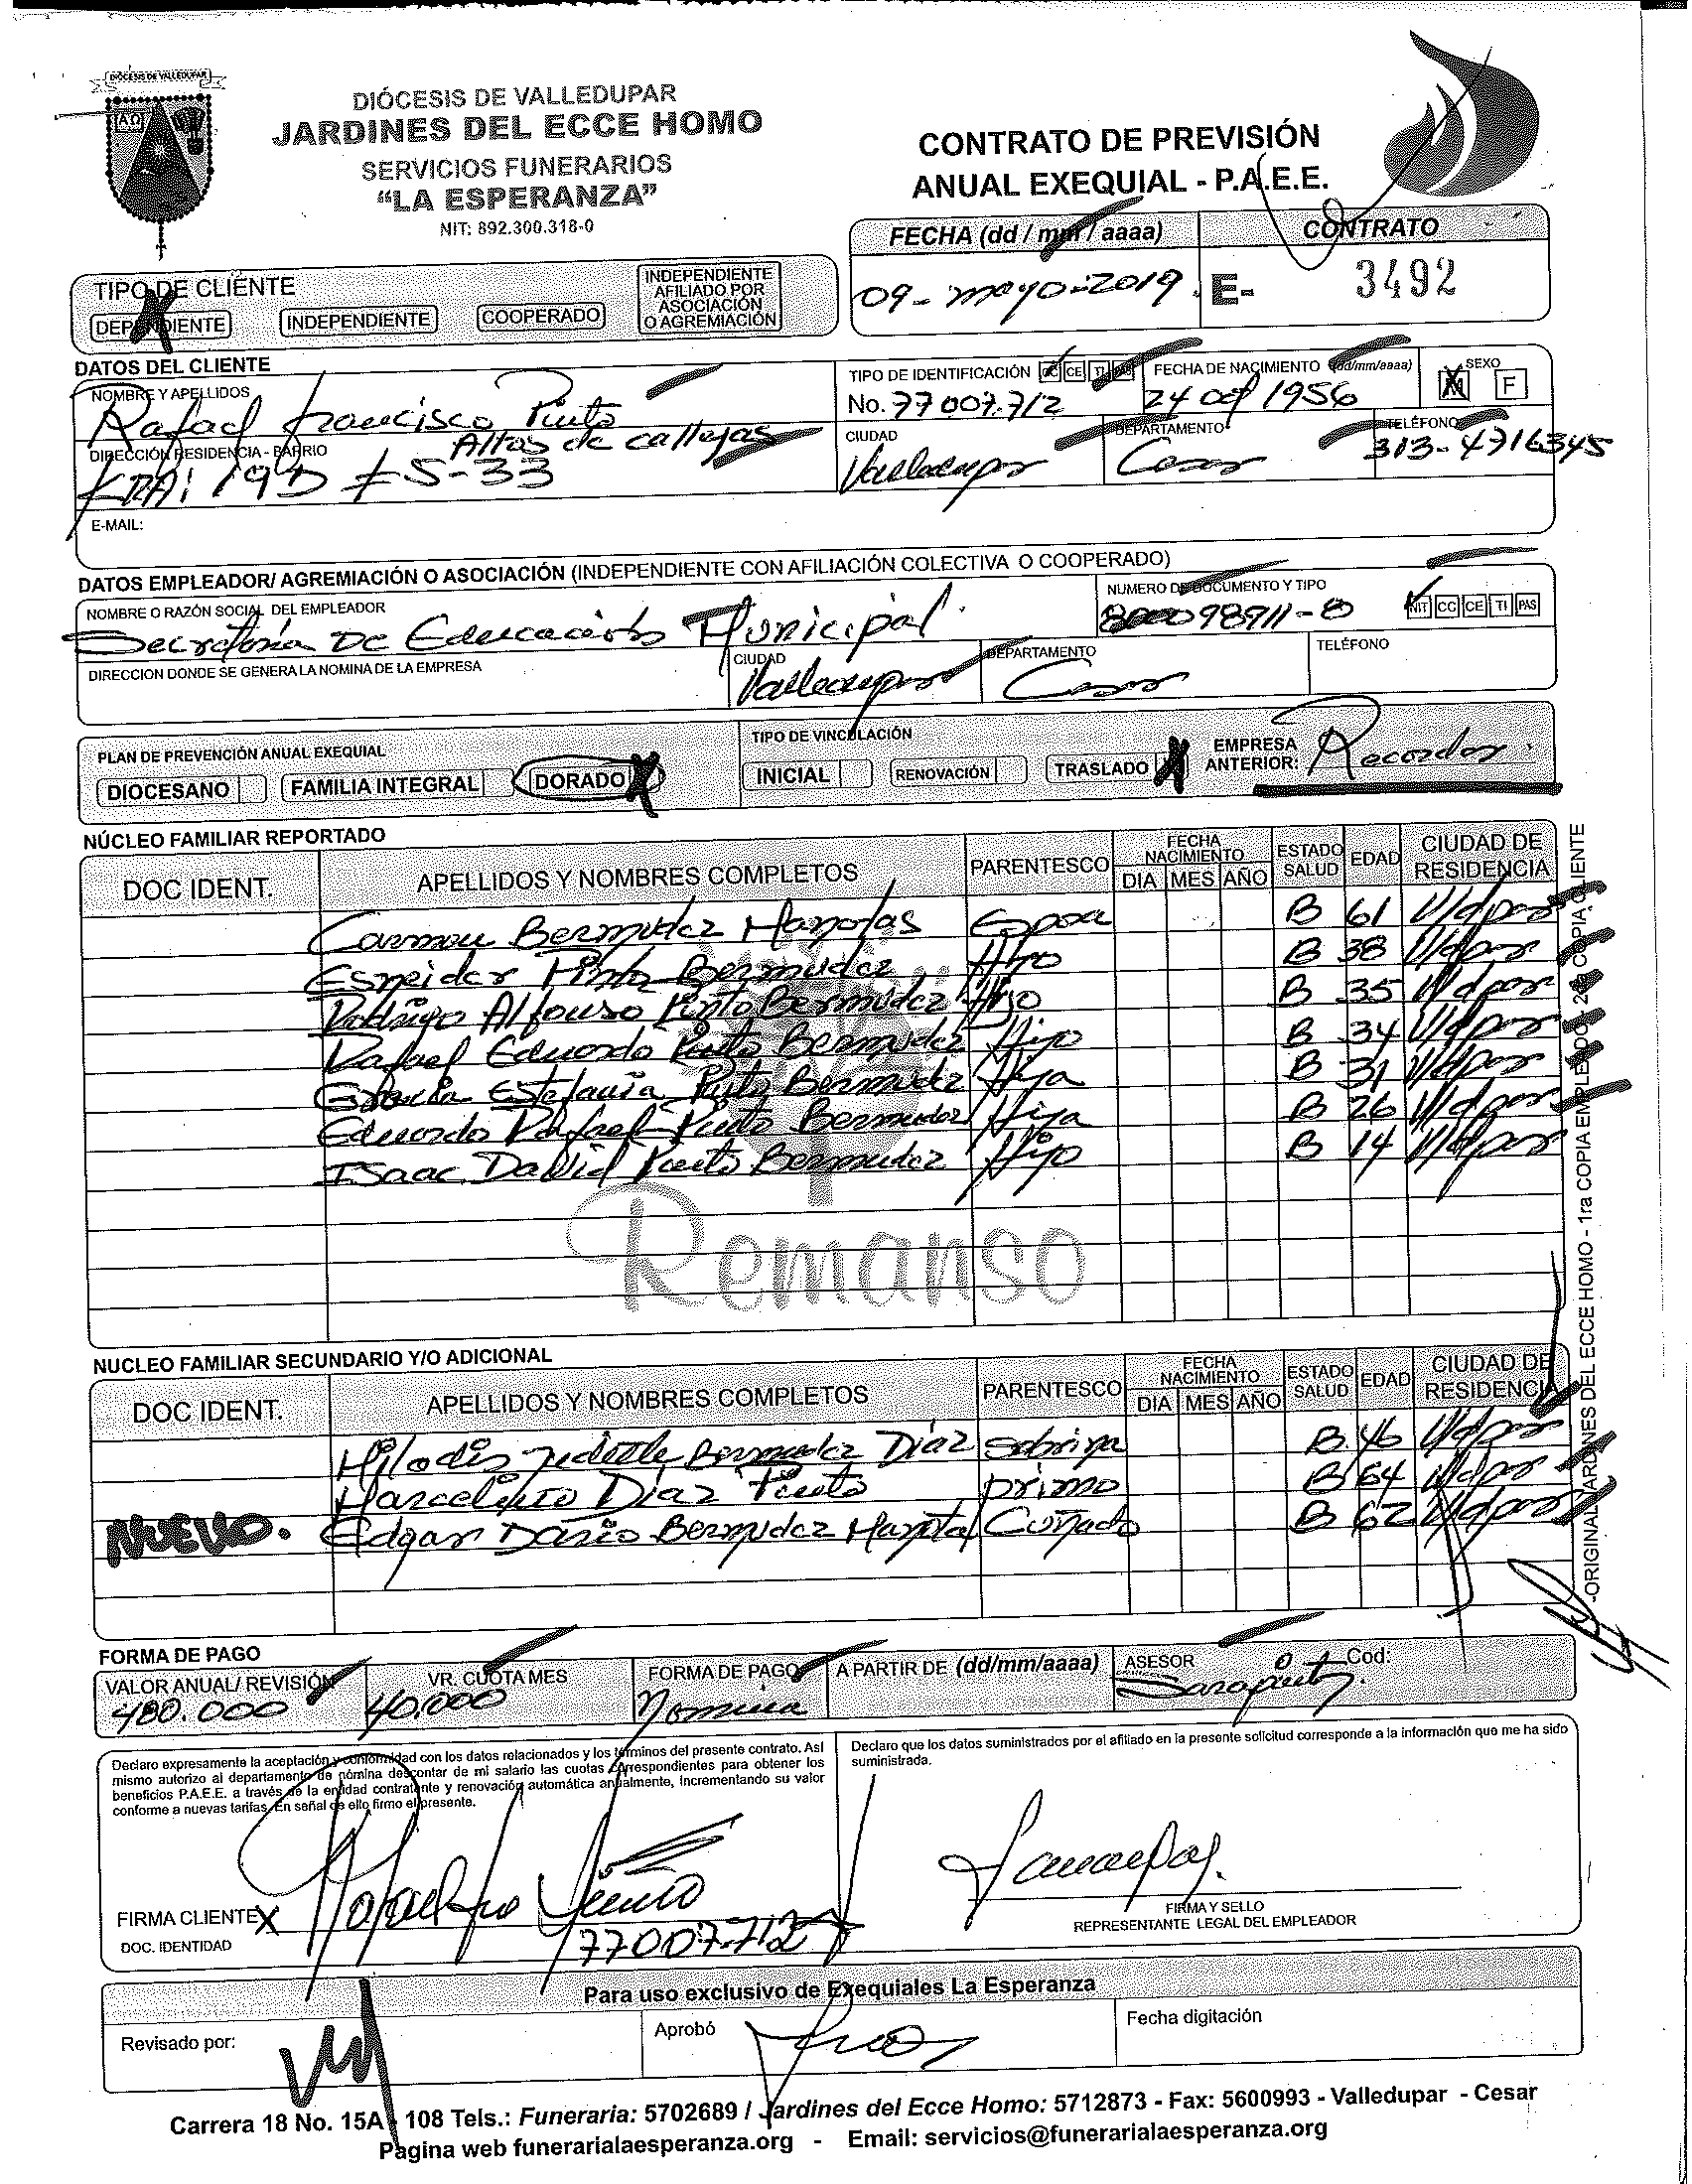 DIÓCESIS DE VALLEDUPAR
ΑΩ
DIÓCESIS DE VALLEDUPAR
JARDINES DEL ECCE HOMO
SERVICIOS FUNERARIOS
“LA ESPERANZA”
NIT: 892.300.318-0
CONTRATO DE PREVISIÓN
ANUAL EXEQUIAL - P.A.E.E.
FECHA (dd / mm / aaaa) CONTRATO
09 - mayo - 2019 E- 3492
TIPO DE CLIENTE
DEPENDIENTE X INDEPENDIENTE COOPERADO INDEPENDIENTE AFILIADO POR ASOCIACIÓN O AGREMIACIÓN
DATOS DEL CLIENTE
NOMBRE Y APELLIDOS
Rafael Francisco Pinto
TIPO DE IDENTIFICACIÓN CC CE TI PAS
No. 77007.712
FECHA DE NACIMIENTO (dd/mm/aaaa)
24 oct 1956
SEXO
M X F
DIRECCIÓN RESIDENCIA - BARRIO
Altos de callejas
KRA: 19D # 5-33
CIUDAD
Valledupar
DEPARTAMENTO
Cesar
TELÉFONO
313-4716345
E-MAIL:
DATOS EMPLEADOR/ AGREMIACIÓN O ASOCIACIÓN (INDEPENDIENTE CON AFILIACIÓN COLECTIVA O COOPERADO)
NOMBRE O RAZÓN SOCIAL DEL EMPLEADOR
Secretaria De Educación Municipal.
NUMERO DE DOCUMENTO Y TIPO
800098911-8 NIT CC CE TI PAS
DIRECCION DONDE SE GENERA LA NOMINA DE LA EMPRESA
CIUDAD
Valledupar
DEPARTAMENTO
Cesar
TELÉFONO
PLAN DE PREVENCIÓN ANUAL EXEQUIAL
DIOCESANO FAMILIA INTEGRAL DORADO X
TIPO DE VINCULACIÓN
INICIAL RENOVACIÓN TRASLADO X
EMPRESA ANTERIOR: Recordar.
NÚCLEO FAMILIAR REPORTADO
DOC IDENT. APELLIDOS Y NOMBRES COMPLETOS PARENTESCO FECHA NACIMIENTO DIA MES AÑO ESTADO SALUD EDAD CIUDAD DE RESIDENCIA
Carmen Bermudez Manotas Esposa B 61 V/dpar
Esneider Pinto Bermudez Hijo B 38 V/dpar
Rodrigo Alfonso Pinto Bermudez Hijo B 35 V/dpar
Rafael Eduardo Pinto Bermudez Hijo B 34 V/dpar
Estefania Pinto Bermudez Hija B 31 V/dpar
Eduardo Rafael Pinto Bermudez Hija B 26 V/dpar
Isaac David Pinto Bermudez Hijo B 14 V/dpar
Remanso
NUCLEO FAMILIAR SECUNDARIO Y/O ADICIONAL
DOC IDENT. APELLIDOS Y NOMBRES COMPLETOS PARENTESCO FECHA NACIMIENTO DIA MES AÑO ESTADO SALUD EDAD CIUDAD DE RESIDENCIA
Bermudez Diaz Sobrina B. 46 V/dpar
Marcelino Diaz Pinto primo B 64 V/dpar
NUEVO. Edgar Dario Bermudez Cuñado B 62 V/dpar
-ORIGINAL JARDINES DEL ECCE HOMO - 1ra COPIA EMPLEADOR 2da COPIA CLIENTE
FORMA DE PAGO
VALOR ANUAL/ REVISIÓN VR. CUOTA MES FORMA DE PAGO A PARTIR DE (dd/mm/aaaa) ASESOR Cod:
480.000 40.000 Nomina
Declaro expresamente la aceptación y conformidad con los datos relacionados y los términos del presente contrato. Así
mismo autorizo al departamento de nómina descontar de mi salario las cuotas correspondientes para obtener los
beneficios P.A.E.E. a través de la entidad contratante y renovación automática anualmente, incrementando su valor
conforme a nuevas tarifas. En señal de ello firmo el presente.
Declaro que los datos suministrados por el afiliado en la presente solicitud corresponde a la información que me ha sido
suministrada.
FIRMA CLIENTE X
DOC. IDENTIDAD
77007.712
FIRMA Y SELLO
REPRESENTANTE LEGAL DEL EMPLEADOR
Para uso exclusivo de Exequiales La Esperanza
Revisado por:
Aprobó
Fecha digitación
Carrera 18 No. 15A - 108 Tels.: Funeraria: 5702689 / Jardines del Ecce Homo: 5712873 - Fax: 5600993 - Valledupar - Cesar
Pagina web funerarialaesperanza.org - Email: servicios@funerarialaesperanza.org